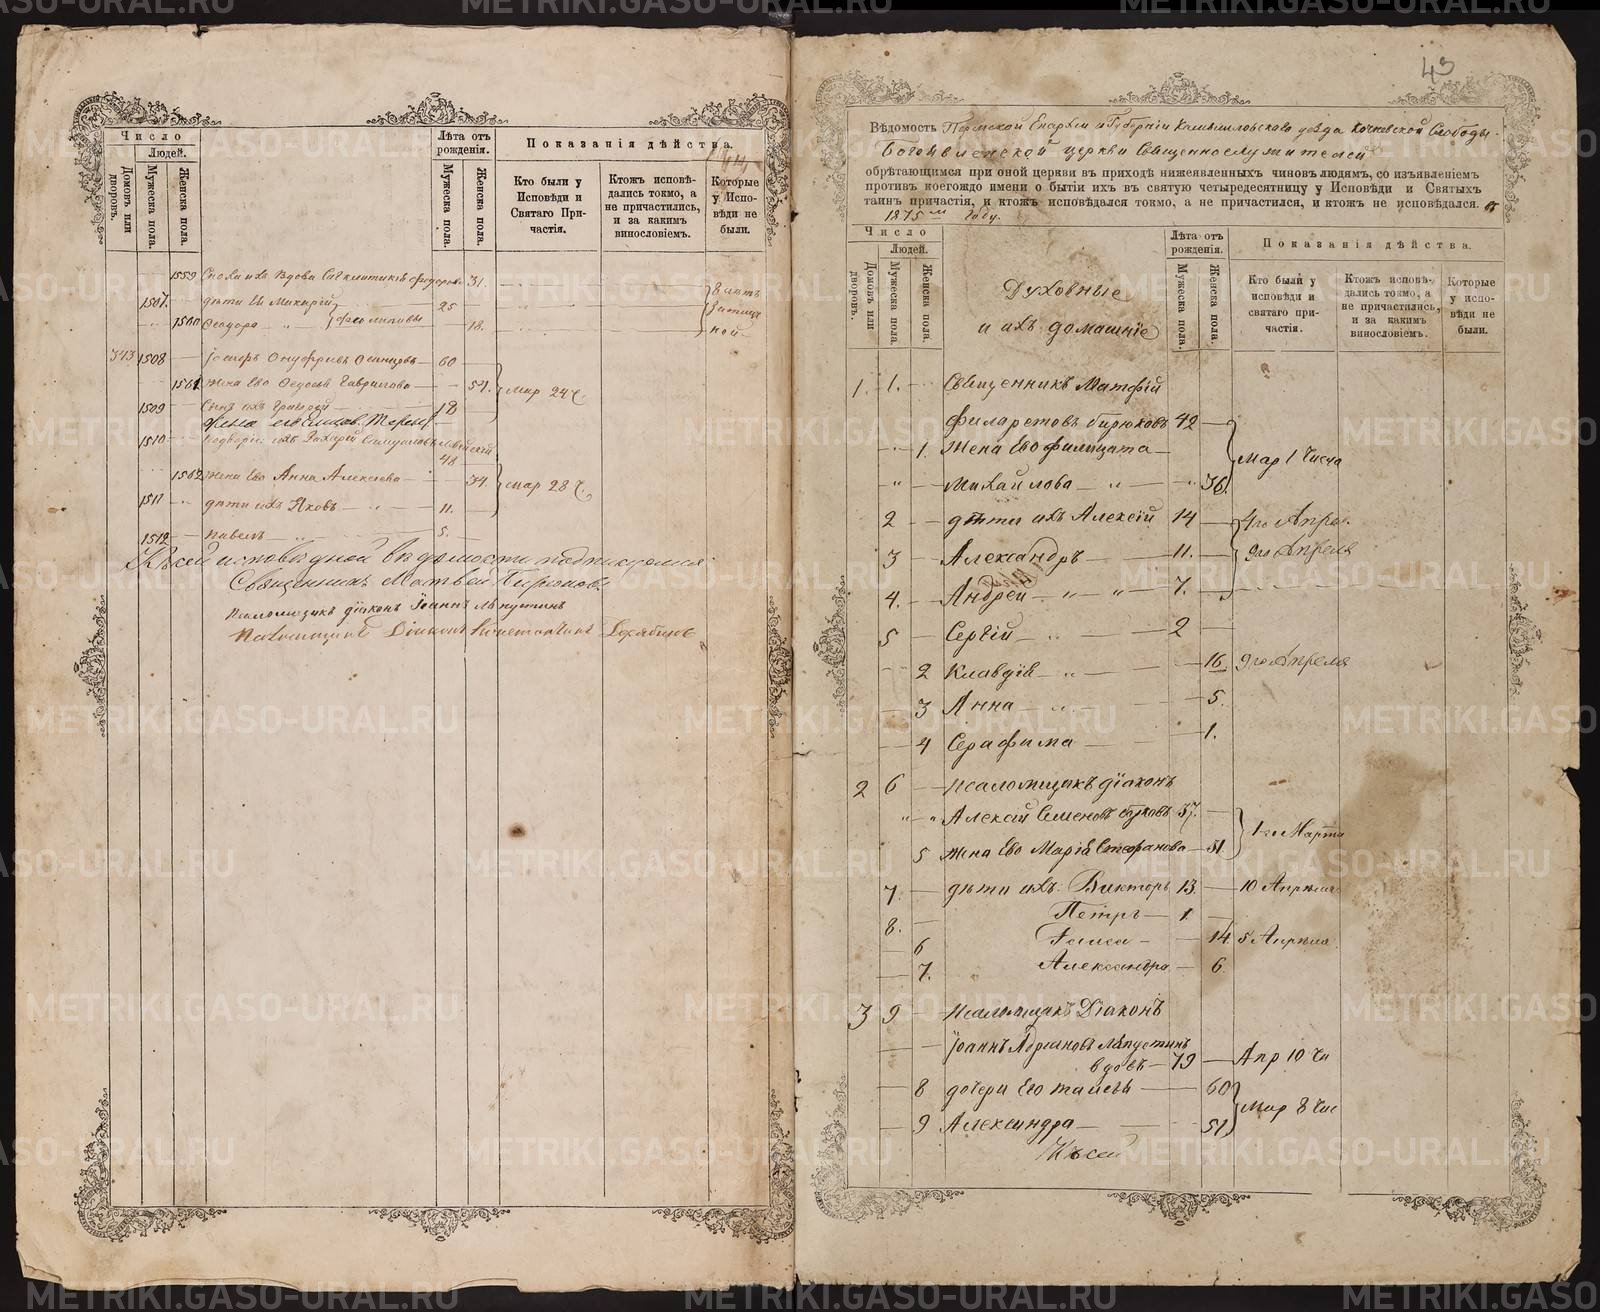 Число
Людей.
Домовъ или дворовъ.
Мужеска пола.
Женска пола.
Лѣта отъ рожденія.
Мужеска пола.
Женска пола.
Показанія дѣйства.
Кто были у Исповѣди и Святаго Причастія.
Ктожъ исповѣдались токмо, а не причастились, и за какимъ винословіемъ.
Которые у Исповѣди не были.
1559 31.
1507 дѣти Макарій 25
1560 Ѳеодора 18.
343 1508 60
1561 Жена Ево Гаврилова 57.
Мар 24 ч.
1509 Сынъ ихъ Григорій 18
1510 48
1562 Жена Ево Анна Алексѣева 34.
мар 28 ч.
1511 дѣти ихъ Яковъ 11.
1512 Павелъ 5.
Къ сей исповѣдной вѣдомости подписуемся
Священникъ Матвей Бирюковъ
Псаломщикъ діаконъ Іоаннъ Лапустинъ
Псаломщикъ Діаконъ Константинъ
43
Вѣдомость Пермской Епархіи и Губерніи Камышловскаго уѣзда Слободы
Богоявленской церкви Священнослужителей
обрѣтающимся при оной церкви въ приходѣ нижеявленныхъ чиновъ людямъ, со изъявленіемъ
противъ коегождо имени о бытіи ихъ въ святую четыредесятницу у Исповѣди и Святыхъ
таинъ причастія, и ктожъ исповѣдался токмо, а не причастился, и ктожъ не исповѣдался.
1875 году.
Число
Людей.
Домовъ или дворовъ.
Мужеска пола.
Женска пола.
Духовные
и ихъ домашніе
Лѣта отъ рожденія.
Мужеска пола.
Женска пола.
Показанія дѣйства.
Кто были у исповѣди и святаго причастія.
Ктожъ исповѣдались токмо, а не причастились, и за какимъ винословіемъ.
Которые у исповѣди не были.
1. 1. Священникъ Матфій
Филаретовъ Бирюковъ 42
1. Жена Ево Филицата
Михайлова 36
Мар 1 Числа
2 дѣти ихъ Алексій 14 4го Апре.
3 Александръ 11. 9го Апреля
4. Андрей 7.
5 Сергій 2
2 Клавдія 16. 9го Апреля
3 Анна 5.
4 Серафима 1.
2 6 Псаломщикъ діаконъ
Алексій Семеновъ 37.
5 Жена Ево Марія Стефанова 31
1го Марта
7. дѣти ихъ Викторъ 13. 10 Апреля
8. Петръ 1
6 Раиса 14 5 Апреля
7. Александра 6
3 9 Псаломщикъ Діаконъ
Іоаннъ Адріановъ Лапустинъ
вдовъ 79 Апр 10 Чи
8 дочери Его 60
9 Александра 51
Мар 8 Чис
Къ сей
METRIKI.GASO-URAL.RU